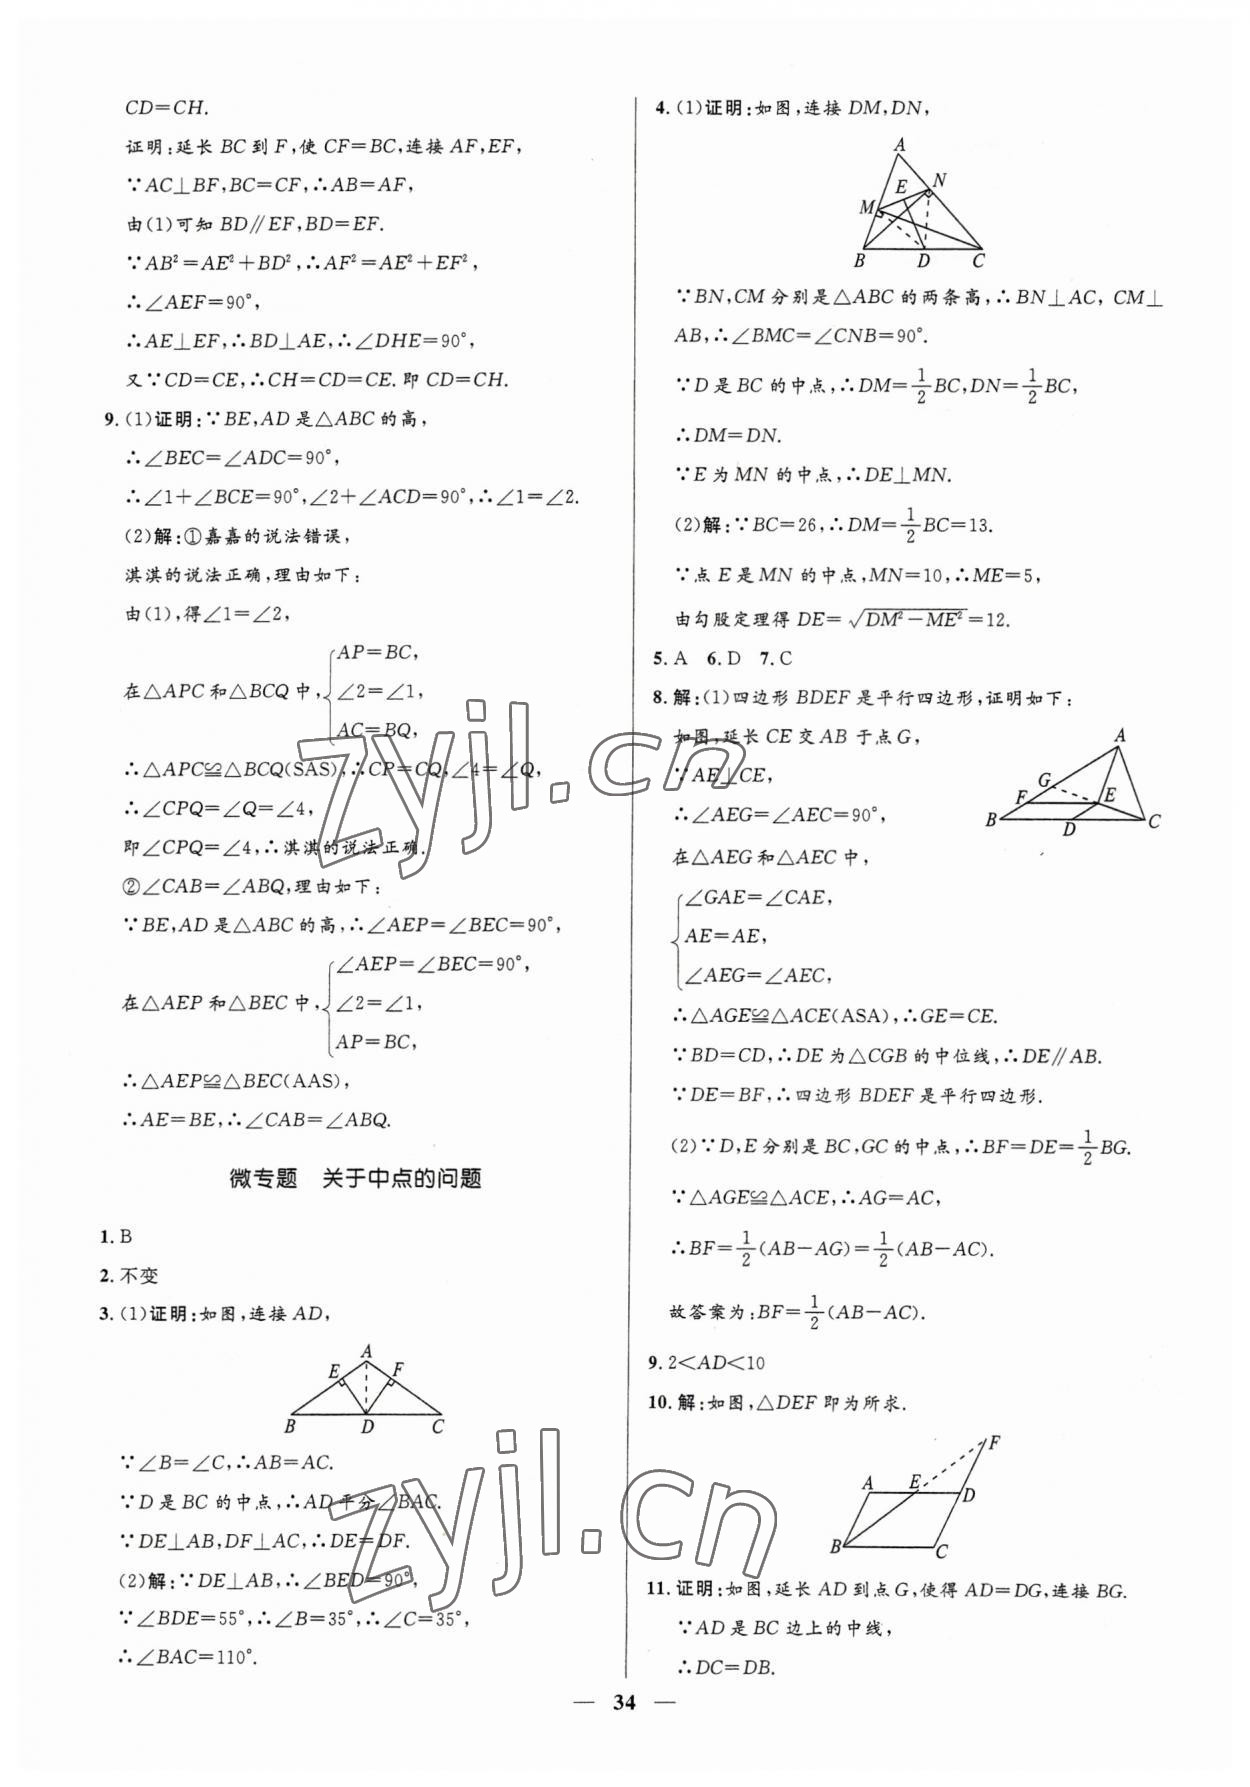 CD=CH.
证明:延长 BC 到 F,使 CF=BC,连接 AF,EF,
∵AC⊥BF,BC=CF,∴AB=AF,
由(1)可知 BD∥EF,BD=EF.
∵AB²=AE²+BD²,∴AF²=AE²+EF²,
∴∠AEF=90°,
∴AE⊥EF,∴BD⊥AE,∴∠DHE=90°,
又∵CD=CE,∴CH=CD=CE.即 CD=CH.
9.(1)证明:∵BE,AD 是△ABC 的高,
∴∠BEC=∠ADC=90°,
∴∠1+∠BCE=90°,∠2+∠ACD=90°,∴∠1=∠2.
(2)解:①嘉嘉的说法错误,
淇淇的说法正确,理由如下:
由(1),得∠1=∠2,
AP=BC,
在△APC 和△BCQ 中,∠2=∠1,
AC=BQ,
∴△APC≌△BCQ(SAS),∴CP=CQ,∠4=∠Q,
∴∠CPQ=∠Q=∠4,
即∠CPQ=∠4,∴淇淇的说法正确.
②∠CAB=∠ABQ,理由如下:
∵BE,AD 是△ABC 的高,∴∠AEP=∠BEC=90°,
∠AEP=∠BEC=90°,
在△AEP 和△BEC 中,∠2=∠1,
AP=BC,
∴△AEP≌△BEC(AAS),
∴AE=BE,∴∠CAB=∠ABQ.
微专题 关于中点的问题
1. B
2. 不变
3.(1)证明:如图,连接 AD,
A
E F
B D C
∵∠B=∠C,∴AB=AC.
∵D 是 BC 的中点,∴AD 平分∠BAC.
∵DE⊥AB,DF⊥AC,∴DE=DF.
(2)解:∵DE⊥AB,∴∠BED=90°,
∵∠BDE=55°,∴∠B=35°,∴∠C=35°,
∴∠BAC=110°.
4.(1)证明:如图,连接 DM,DN,
A
E N
M
B D C
∵BN,CM 分别是△ABC 的两条高,∴BN⊥AC, CM⊥
AB,∴∠BMC=∠CNB=90°.
∵D 是 BC 的中点,∴DM=1/2BC,DN=1/2BC,
∴DM=DN.
∵E 为 MN 的中点,∴DE⊥MN.
(2)解:∵BC=26,∴DM=1/2BC=13.
∵点 E 是 MN 的中点,MN=10,∴ME=5,
由勾股定理得 DE=√(DM²-ME²)=12.
5. A 6. D 7. C
8. 解:(1)四边形 BDEF 是平行四边形,证明如下:
如图,延长 CE 交 AB 于点 G,
∵AE⊥CE,
∴∠AEG=∠AEC=90°,
在△AEG 和△AEC 中,
A
G
F E
B D C
∠GAE=∠CAE,
AE=AE,
∠AEG=∠AEC,
∴△AGE≌△ACE(ASA),∴GE=CE.
∵BD=CD,∴DE 为△CGB 的中位线,∴DE∥AB.
∵DE=BF,∴四边形 BDEF 是平行四边形.
(2)∵D,E 分别是 BC,GC 的中点,∴BF=DE=1/2BG.
∵△AGE≌△ACE,∴AG=AC,
∴BF=1/2(AB-AG)=1/2(AB-AC).
故答案为:BF=1/2(AB-AC).
9. 2<AD<10
10. 解:如图,△DEF 即为所求.
F
A E D
B C
11. 证明:如图,延长 AD 到点 G,使得 AD=DG,连接 BG.
∵AD 是 BC 边上的中线,
∴DC=DB.
— 34 —
zyjl.cn
zyjl.cn